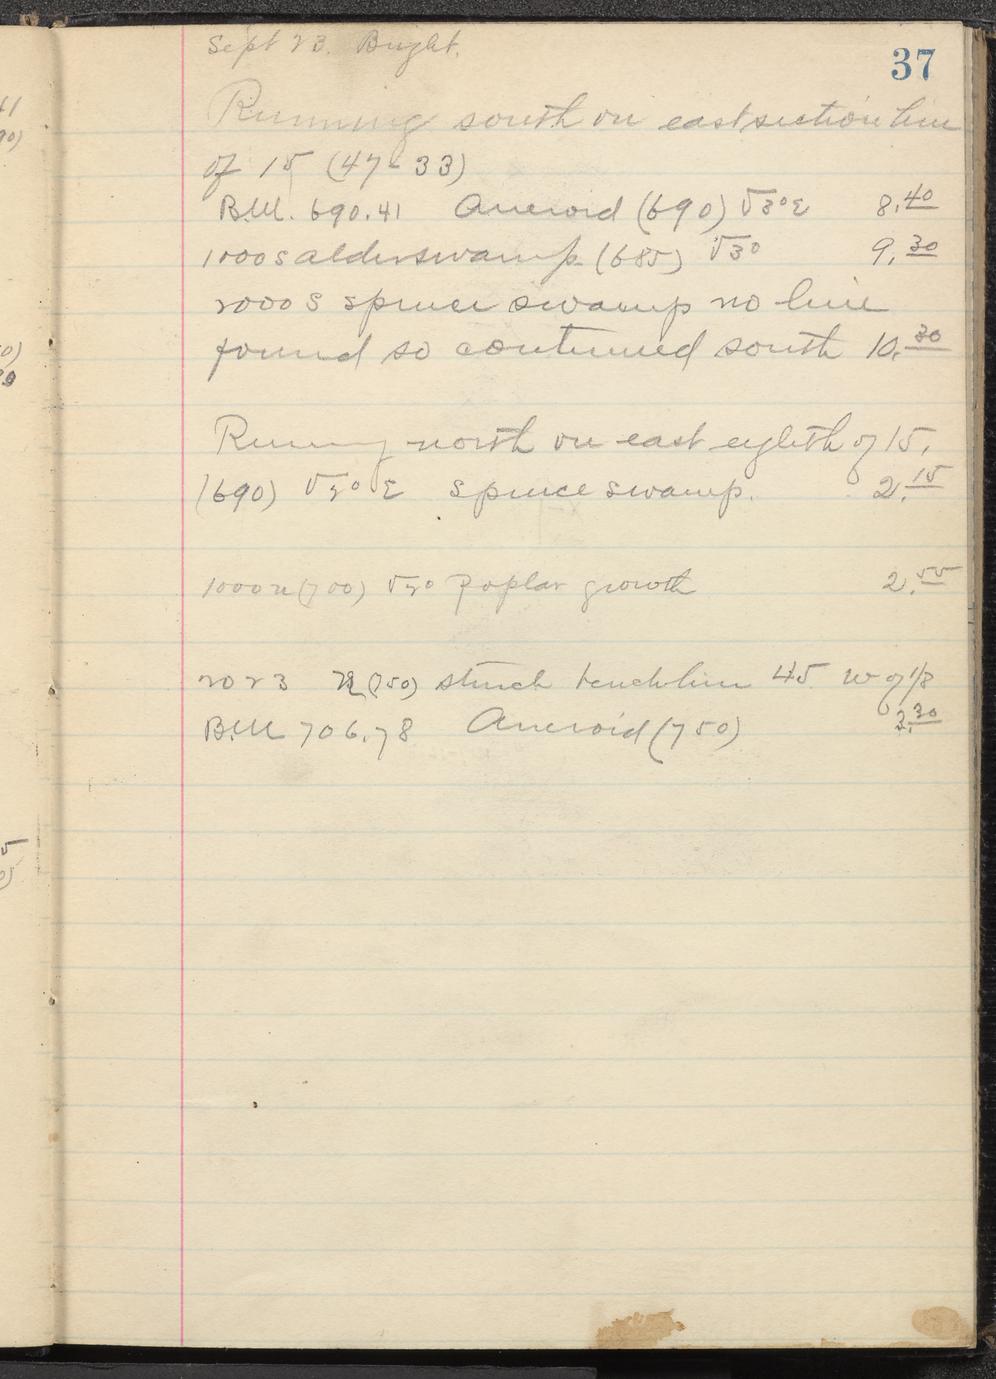 37
Sept 23. Bright.
Running south on east section line
of 15 (47-33)
B.M. 690.41 Aneroid (690) √3°E 8.40
1000 S alder swamp (685) √3° 9.30
2000 S spruce swamp no line
found so continued south 10.30
Running north on east eighth of 15.
(690) √2° E spruce swamp. 2.15
1000 N (700) √2° Poplar growth 2.55
2023 N (750) struck bench line 45 W of 1/8
B.M. 706.78 Aneroid (750) 3.30